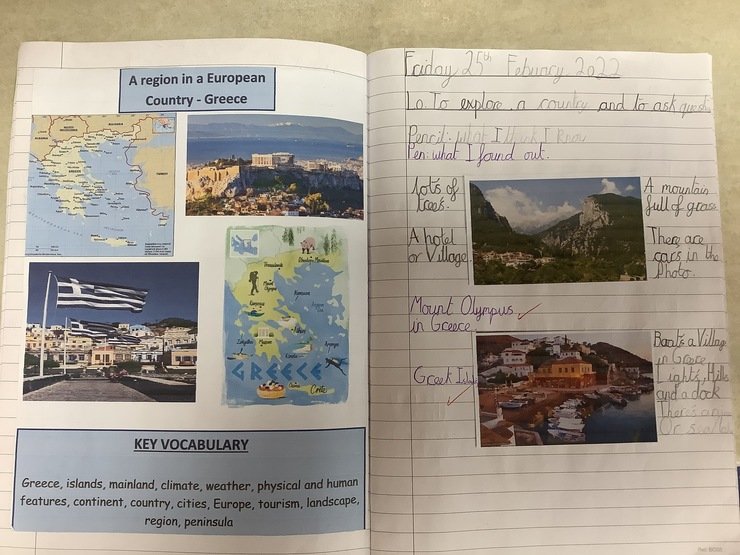 A region in a European
Country - Greece
GREECE
Crete
KEY VOCABULARY
Greece, islands, mainland, climate, weather, physical and human
features, continent, country, cities, Europe, tourism, landscape,
region, peninsula
Friday 25th Febuary 2022
Lo. To explore a country and to ask
Pencil: what I think I know
Pen: what I found out.
lots of
trees.
A hotel
or Village
A mountain
full of grass
There are
cars in the
Photo.
Mount Olympus
in Greece
Greek
Boats a Village
in
Lights, Hills
and a dock